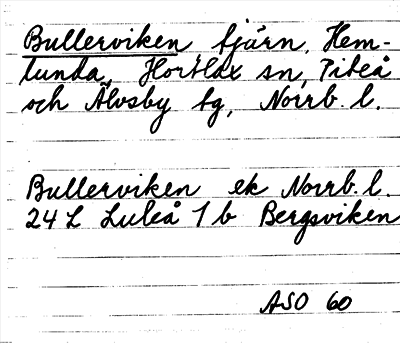 Bullerviken, fjärn, Hem-
lunda, Hortlax sn, Piteå
och Älvsby tg, Norrb. l.
Bullerviken ek Norrb. l.
24 L Luleå 1 b Bergsviken
ASO 60